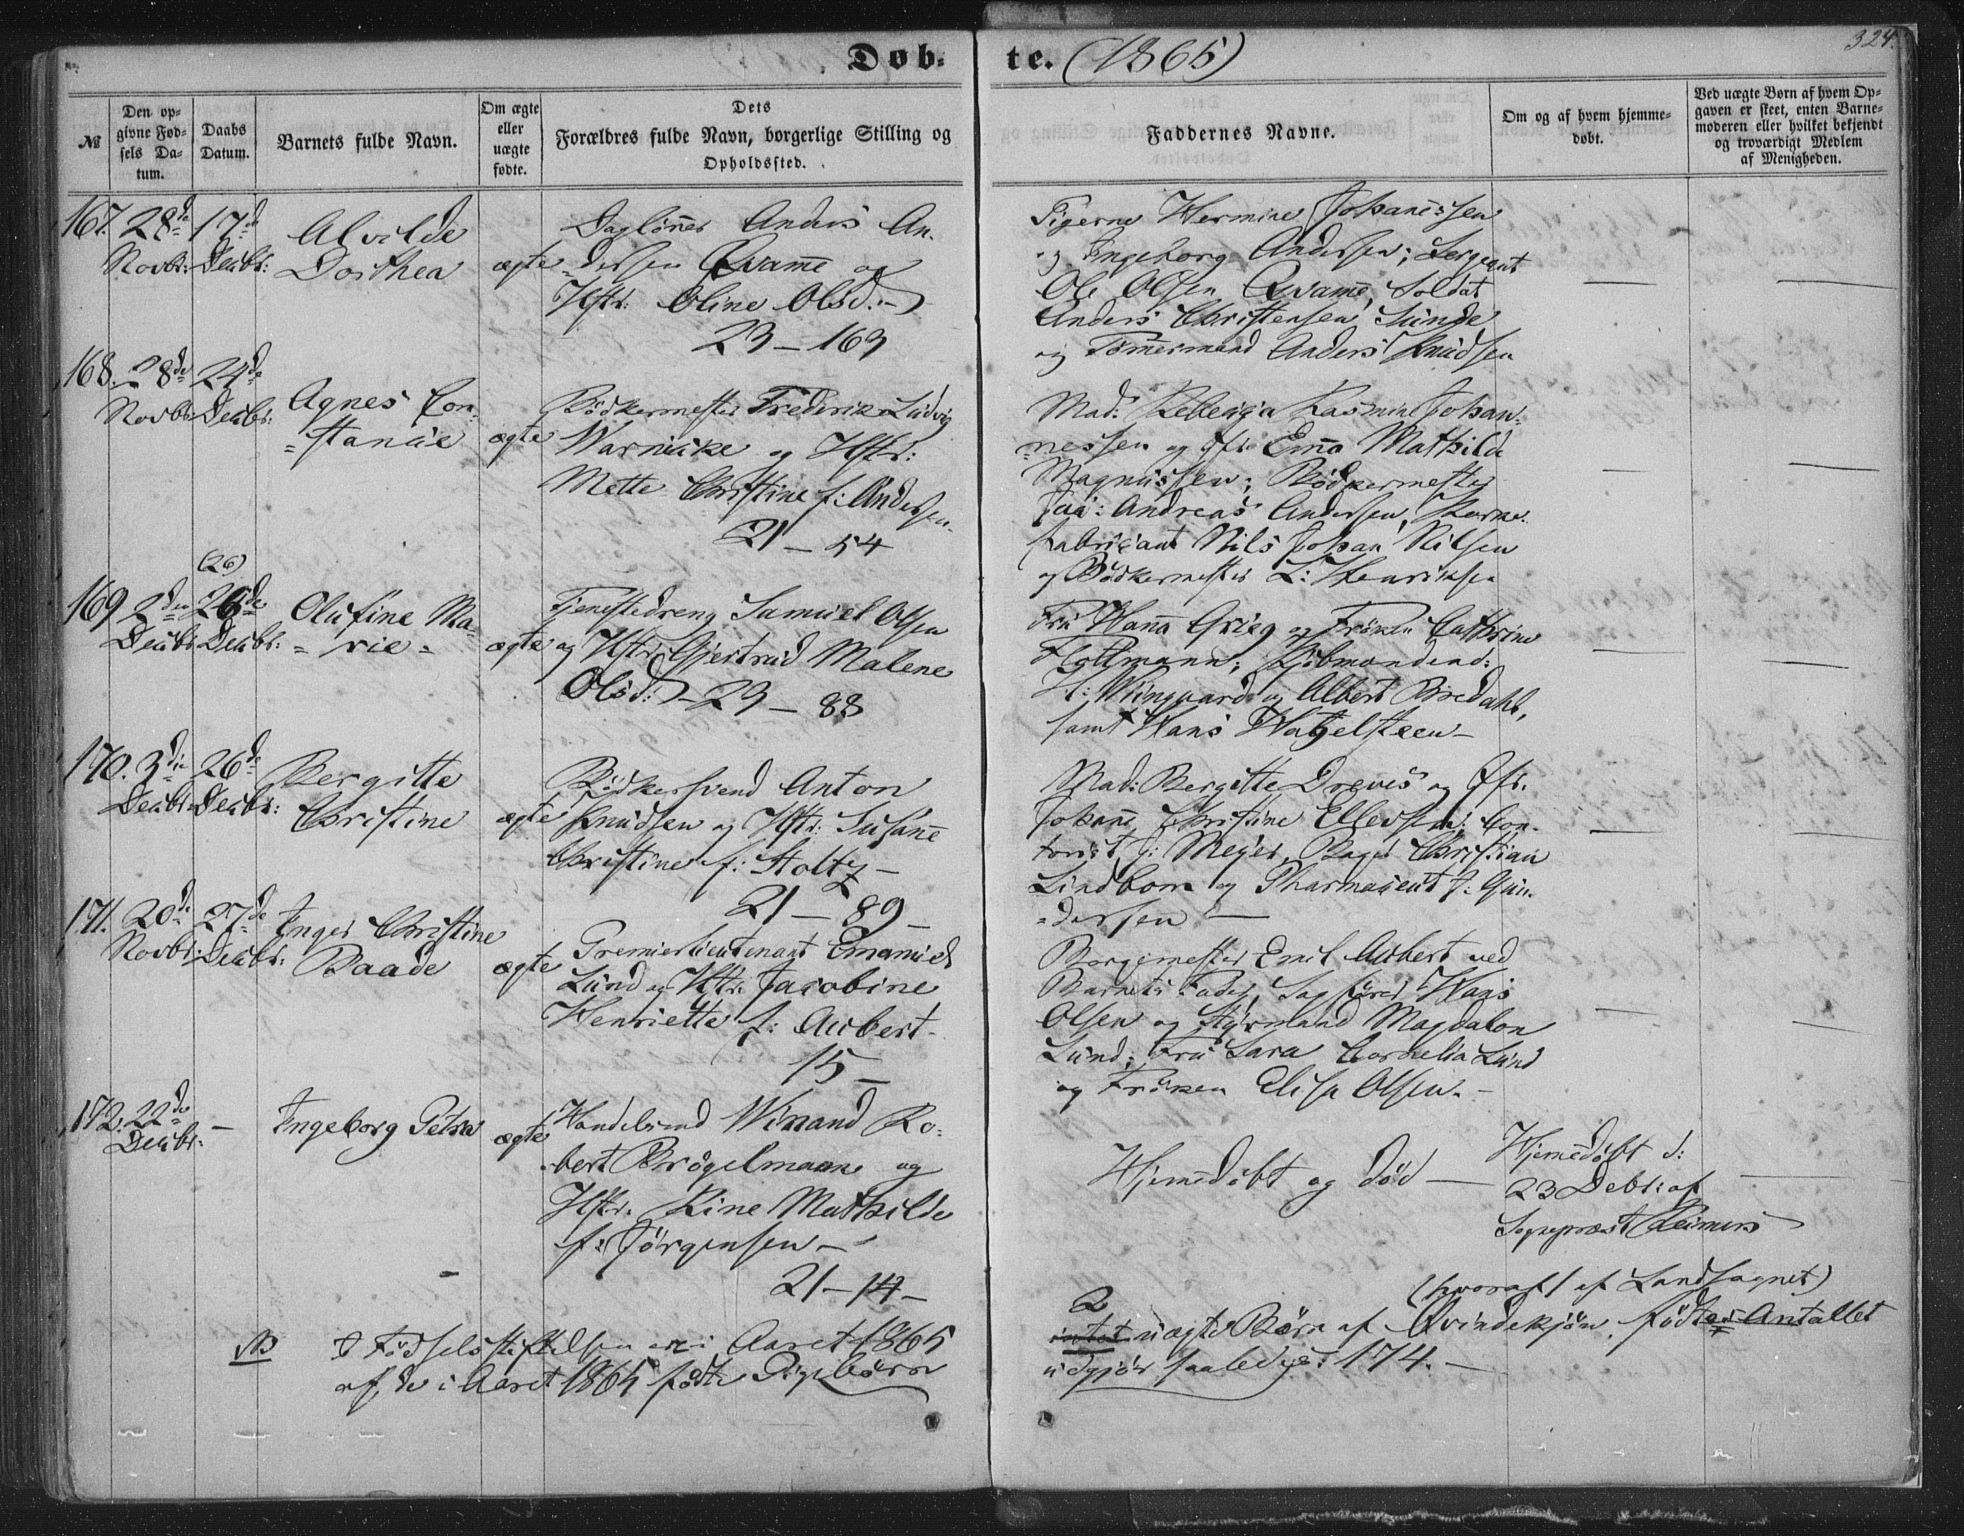 Døb-
te. (1865)
324.
№
Den op-
givne Fød-
sels Da-
tum.
Daabs
Datum.
Barnets fulde Navn.
Om ægte
eller
uægte
fødte.
Dets
Forældres fulde Navn, borgerlige Stilling og
Opholdssted.
Faddernes Navne.
Om og af hvem hjemme-
døbt.
Ved uægte Børn af hvem Op-
gaven er skeet, enten Barne-
moderen eller hvilket bekjendt
og troværdigt Medlem
af Menigheden.
167. 28de 17de
Novbr: Decbr:
Alvilde
Dorthea
ægte
Daglönner Anders An-
dersen Qvamme og
Hstr: Oline Olsd:
23 — 163
Pigerne Hermine Johannessen
og Ingeborg Andersen; Sergeant
Ole Olsen Qvamme, Soldat
Anders Christensen Sunde
og Tømmermand Anders Knudsen
168. 28de 24de
Novbr: Decbr:
Agnes Con-
=stance
ægte
Bödkermester Frederik Ludvig
Warneche og Hstr:
Mette Christine f: Andersen.
21 — 54
Mad: Rebecca Rasmine Johan-
=nessen og Jfr Emma Mathilde
Magnussen; Bödkermester
Andreas Andersen,
fabricant Nils Johan Nilsen
og Bödkermester L: Henriksen
(26)
169 2den 26de
Decbr: Decbr:
Olufine Ma-
= rie =
ægte
Tjenestedreng Samuel Olsen
og Hstr: Gjertrud Malene
Olsd: — 23 — 88
Fru Hanna Grieg og Fröken Cathrine
Flottmann; Kjöbmændend:
Wiingaard og Albert Bredahl,
samt Hans Hatzelsteen —
170. 3die 26de
Decbr: Decbr:
Bergitte
Christine
ægte
Bödkersvend Anton
Knudsen og Hstr: Susanne
Christine f: Stoltz —
21 — 89 —
Mad: Bergitte Dreves og Jfr.
Johanne Christine Ellevsen; Con-
torist J: Meyer, Bager Christian
Lindbom og Pharmaceut J: Gun-
=dersen —
171. 20de 27de
Novbr: Decbr:
Inger Christine
Baade
ægte
Premierlieutenant Emanuel
Lund og Hstr: Jacobine
Henriette f: Aubert.
15 —
Borgemester Emil Aubert ved
Barnets Fader, Sagförer Hans
Olsen og Styrmand Magdalon
Lund; Fru Sara Cornelia Lund
og Fröken Elisa Olsen. —
172. 22de
Decbr:
—
Ingeborg Petra
ægte
Handelsmd Winand Ro-
bert Brögelmann og
Hstr. Rine Mathilde
f: Jörgensen —
21 — 14 —
Hjemmedöbt og död —
Hjemmedöbt d:
23 Decbr: af
Sognepræst Reimers
NB
I Födselsstiftelsen er i Aaret 1865
af de i Aaret 1865 födte Pigebörn
(hvoraf 1 af Landsognet)
2
intet uægte Börn af Qvindekjön födt. Antallet
udgjör saaledes: 174. —